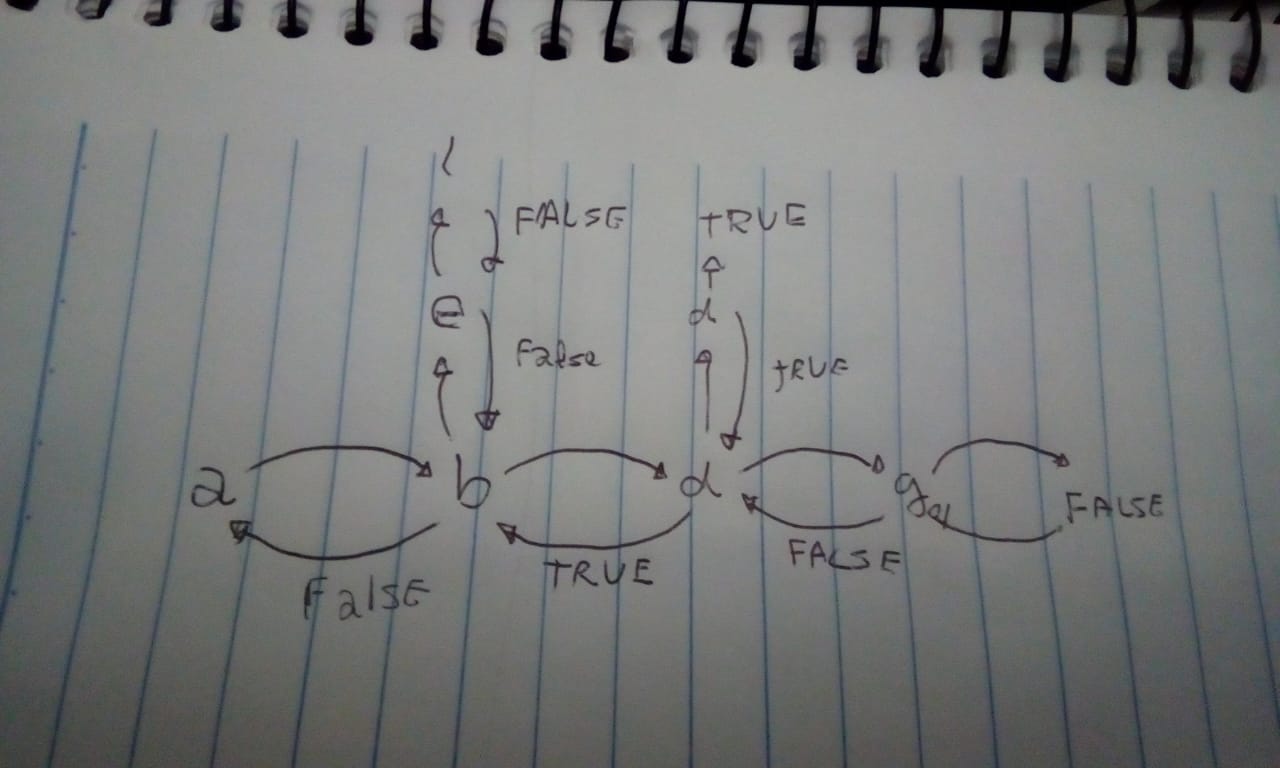 l
FALSE TRUE
E d
False TRUE
a b d g FALSE
FalSE TRUE FALSE